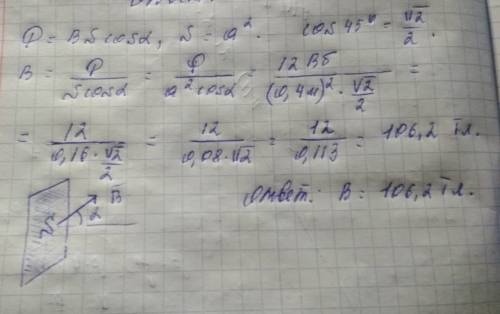 Φ = BScosα, S = a². cos 45° = √2/2.
B = Φ/(Scosα) = Φ/(a²cosα) = 12 Вб/((0,4м)² · √2/2) =
= 12/(0,16 · √2/2) = 12/(0,08 · √2) = 12/0,113 = 106,2 Тл.
B
α
Ответ: B = 106,2 Тл.